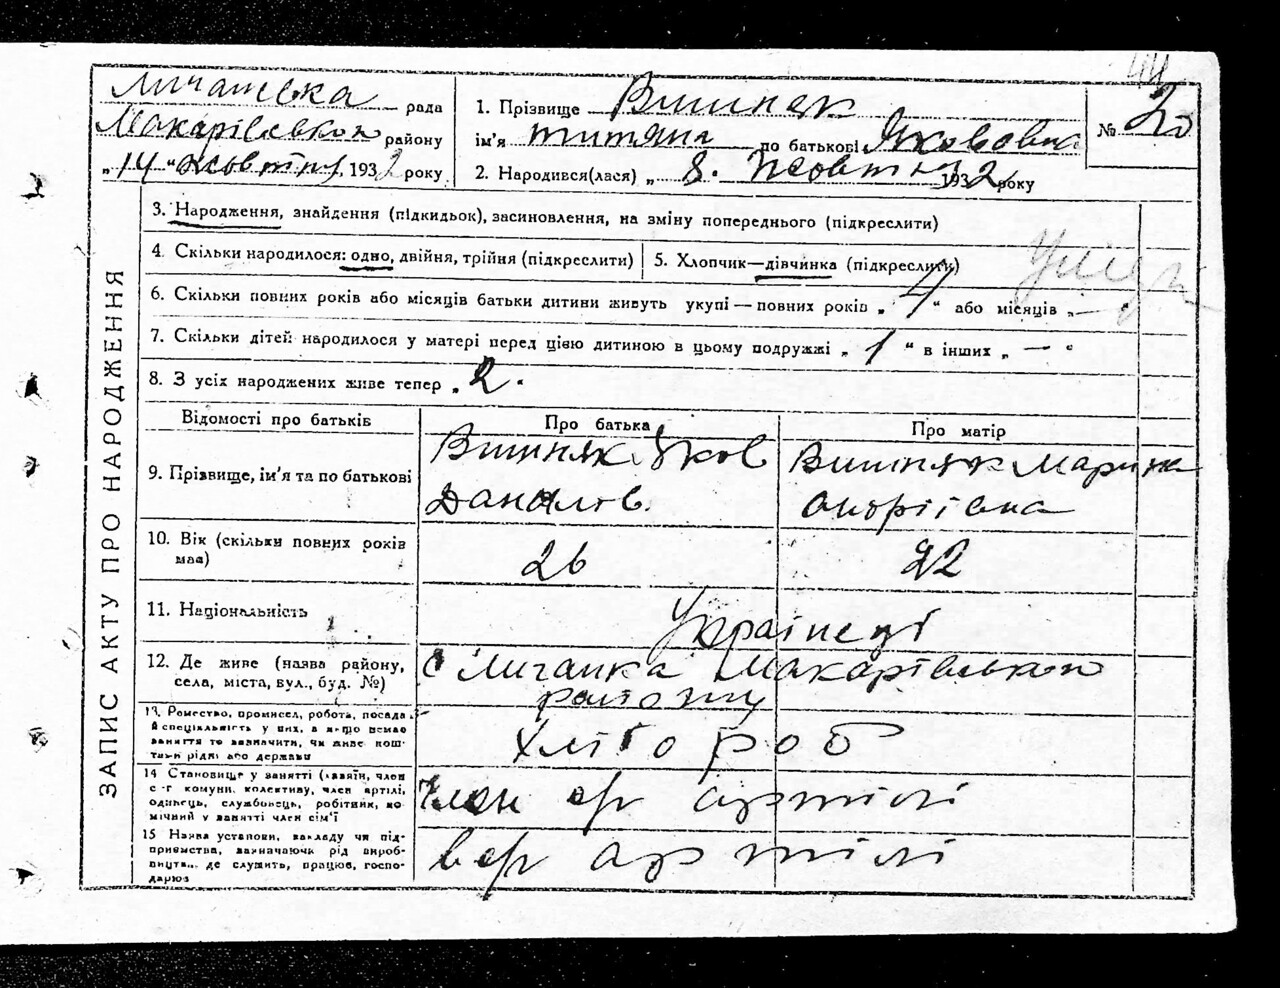 44
Личанська рада
Макарівського району
„14" жовтня 1932 року
1. Прізвище Вишняк
ім'я Титяна по батькові Якововна
2. Народився(лася) „ 8. жовтня 1932 року
№ 20
ЗАПИС АКТУ ПРО НАРОДЖЕННЯ
3. Народження, знайдення (підкидьок), засиновлення, на зміну попереднього (підкреслити)
4. Скільки народилося: одно, двійня, трійня (підкреслити)
5. Хлопчик—дівчинка (підкреслити)
6. Скільки повних років або місяців батьки дитини живуть укупі—повних років „ 4 " або місяців „ — "
7. Скільки дітей народилося у матері перед цією дитиною в цьому подружжі „ 1 " в інших „ — "
8. З усіх народжених живе тепер „ 2.
Відомості про батьків
Про батька
Про матір
9. Прізвище, ім'я та по батькові
Вишняк Яков
Данилов.
Вишняк Марина
Андріївна
10. Вік (скільки повних років
має)
26
22
11. Національність
Українці
12. Де живе (назва району,
села, міста, вул., буд. №)
с Личанка Макарівського
району
13. Ремество, промисел, робота, посада
й спеціяльність у них, а якщо немає
заняття то зазначити, чи живе кош-
тами рідні або держави
Хлібороб
14 Становище у занятті (хазяїн, член
с.-г комуни, колективу, член артілі,
одинець, службовець, робітник, до
мічний у занятті член сім'ї
Член с/г артілі
15 Назва установи, закладу чи під-
приємства, зазначаючи рід вироб-
ництв., де служить, працює, госпо-
дарює
в с/г артілі